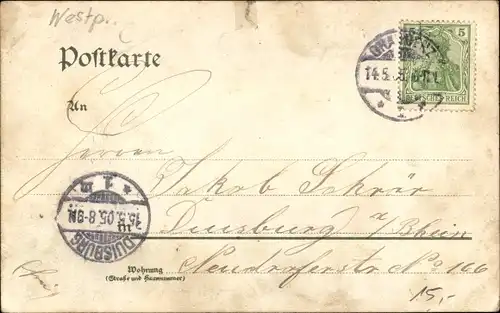 Westp.
Postkarte
5
14.5.05
DEUTSCHES REICH
An
Herrn
Jakob Schrör
* 1 m
15.5.05.8-9N.
DUISBURG
Duisburg a/Rhein
Wohnung
(Straße und Hausnummer)
No 166
15,-